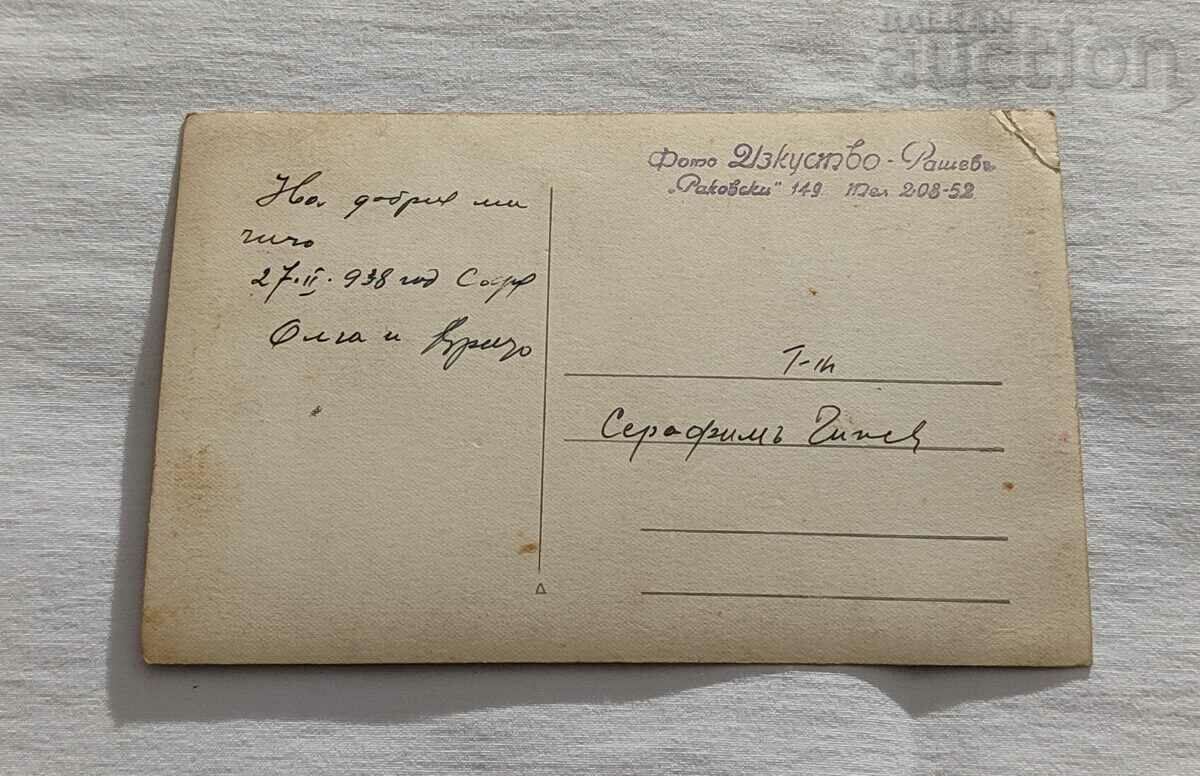 BALKAN
auction
Фото Изкуство - Рашевъ
"Раковски" 149. Тел. 2-08-52
На добрия ми
чичо
27.II.938 год Софя
Олга и
Г-нъ
Серафимъ